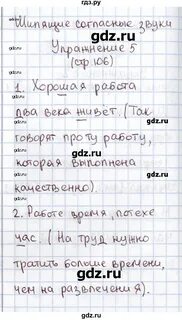 гдз.ру
Шипящие согласные звуки
Упражнение 5
(стр 106)
1. Хорошая работа
два века живет. (Так
говорят про ту работу,
которая выполнена
качественно).
2. Работе время, потехе
час. (На труд нужно
тратить больше времени,
чем на развлечения).